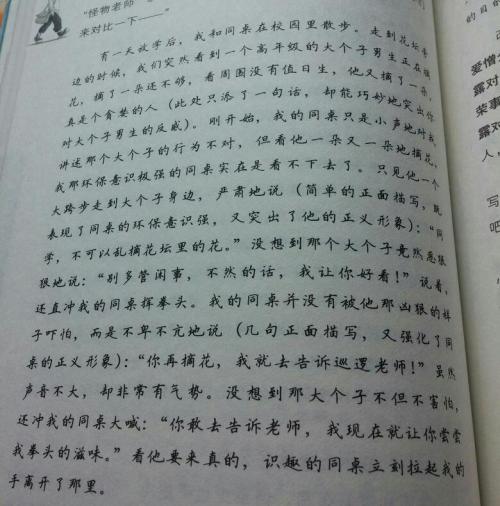 “怪物老师”
来对比一下——”
有一天放学后，我和同桌在校园里散步。走到花坛旁
边的时候，我们突然看到一个高年级的大个子男生正在摘
花，摘了一朵还不够，看周围没有值日生，他又摘了一朵，
真是个贪婪的人（此处只添了一句话，却能巧妙地突出你
对大个子男生的反感）。刚开始，我的同桌只是小声地对我
讲述那个大个子的行为不对，但看他一朵又一朵地摘花，
我那环保意识极强的同桌实在是看不下去了。只见他一个
大跨步走到大个子身边，严肃地说（简单的正面描写，既
表现了同桌的环保意识强，又突出了他的正义形象）：“同
学，不可以乱摘花坛里的花。”没想到那个大个子竟然恶狠
狠地说：“别多管闲事，不然的话，我让你好看！”说着，
还直冲我的同桌挥拳头。我的同桌并没有被他那凶狠的样
子吓怕，而是不卑不亢地说（几句正面描写，又强化了同
桌的正义形象）：“你再摘花，我就去告诉巡逻老师！”虽然
声音不大，却非常有气势。没想到那大个子不但不害怕，
还冲我的同桌大喊：“你敢去告诉老师，我现在就让你尝尝
我拳头的滋味。”看他要来真的，识趣的同桌立刻拉起我的
手离开了那里。
的目的
爱憎
露对
荣事
露对
人，
写
吧